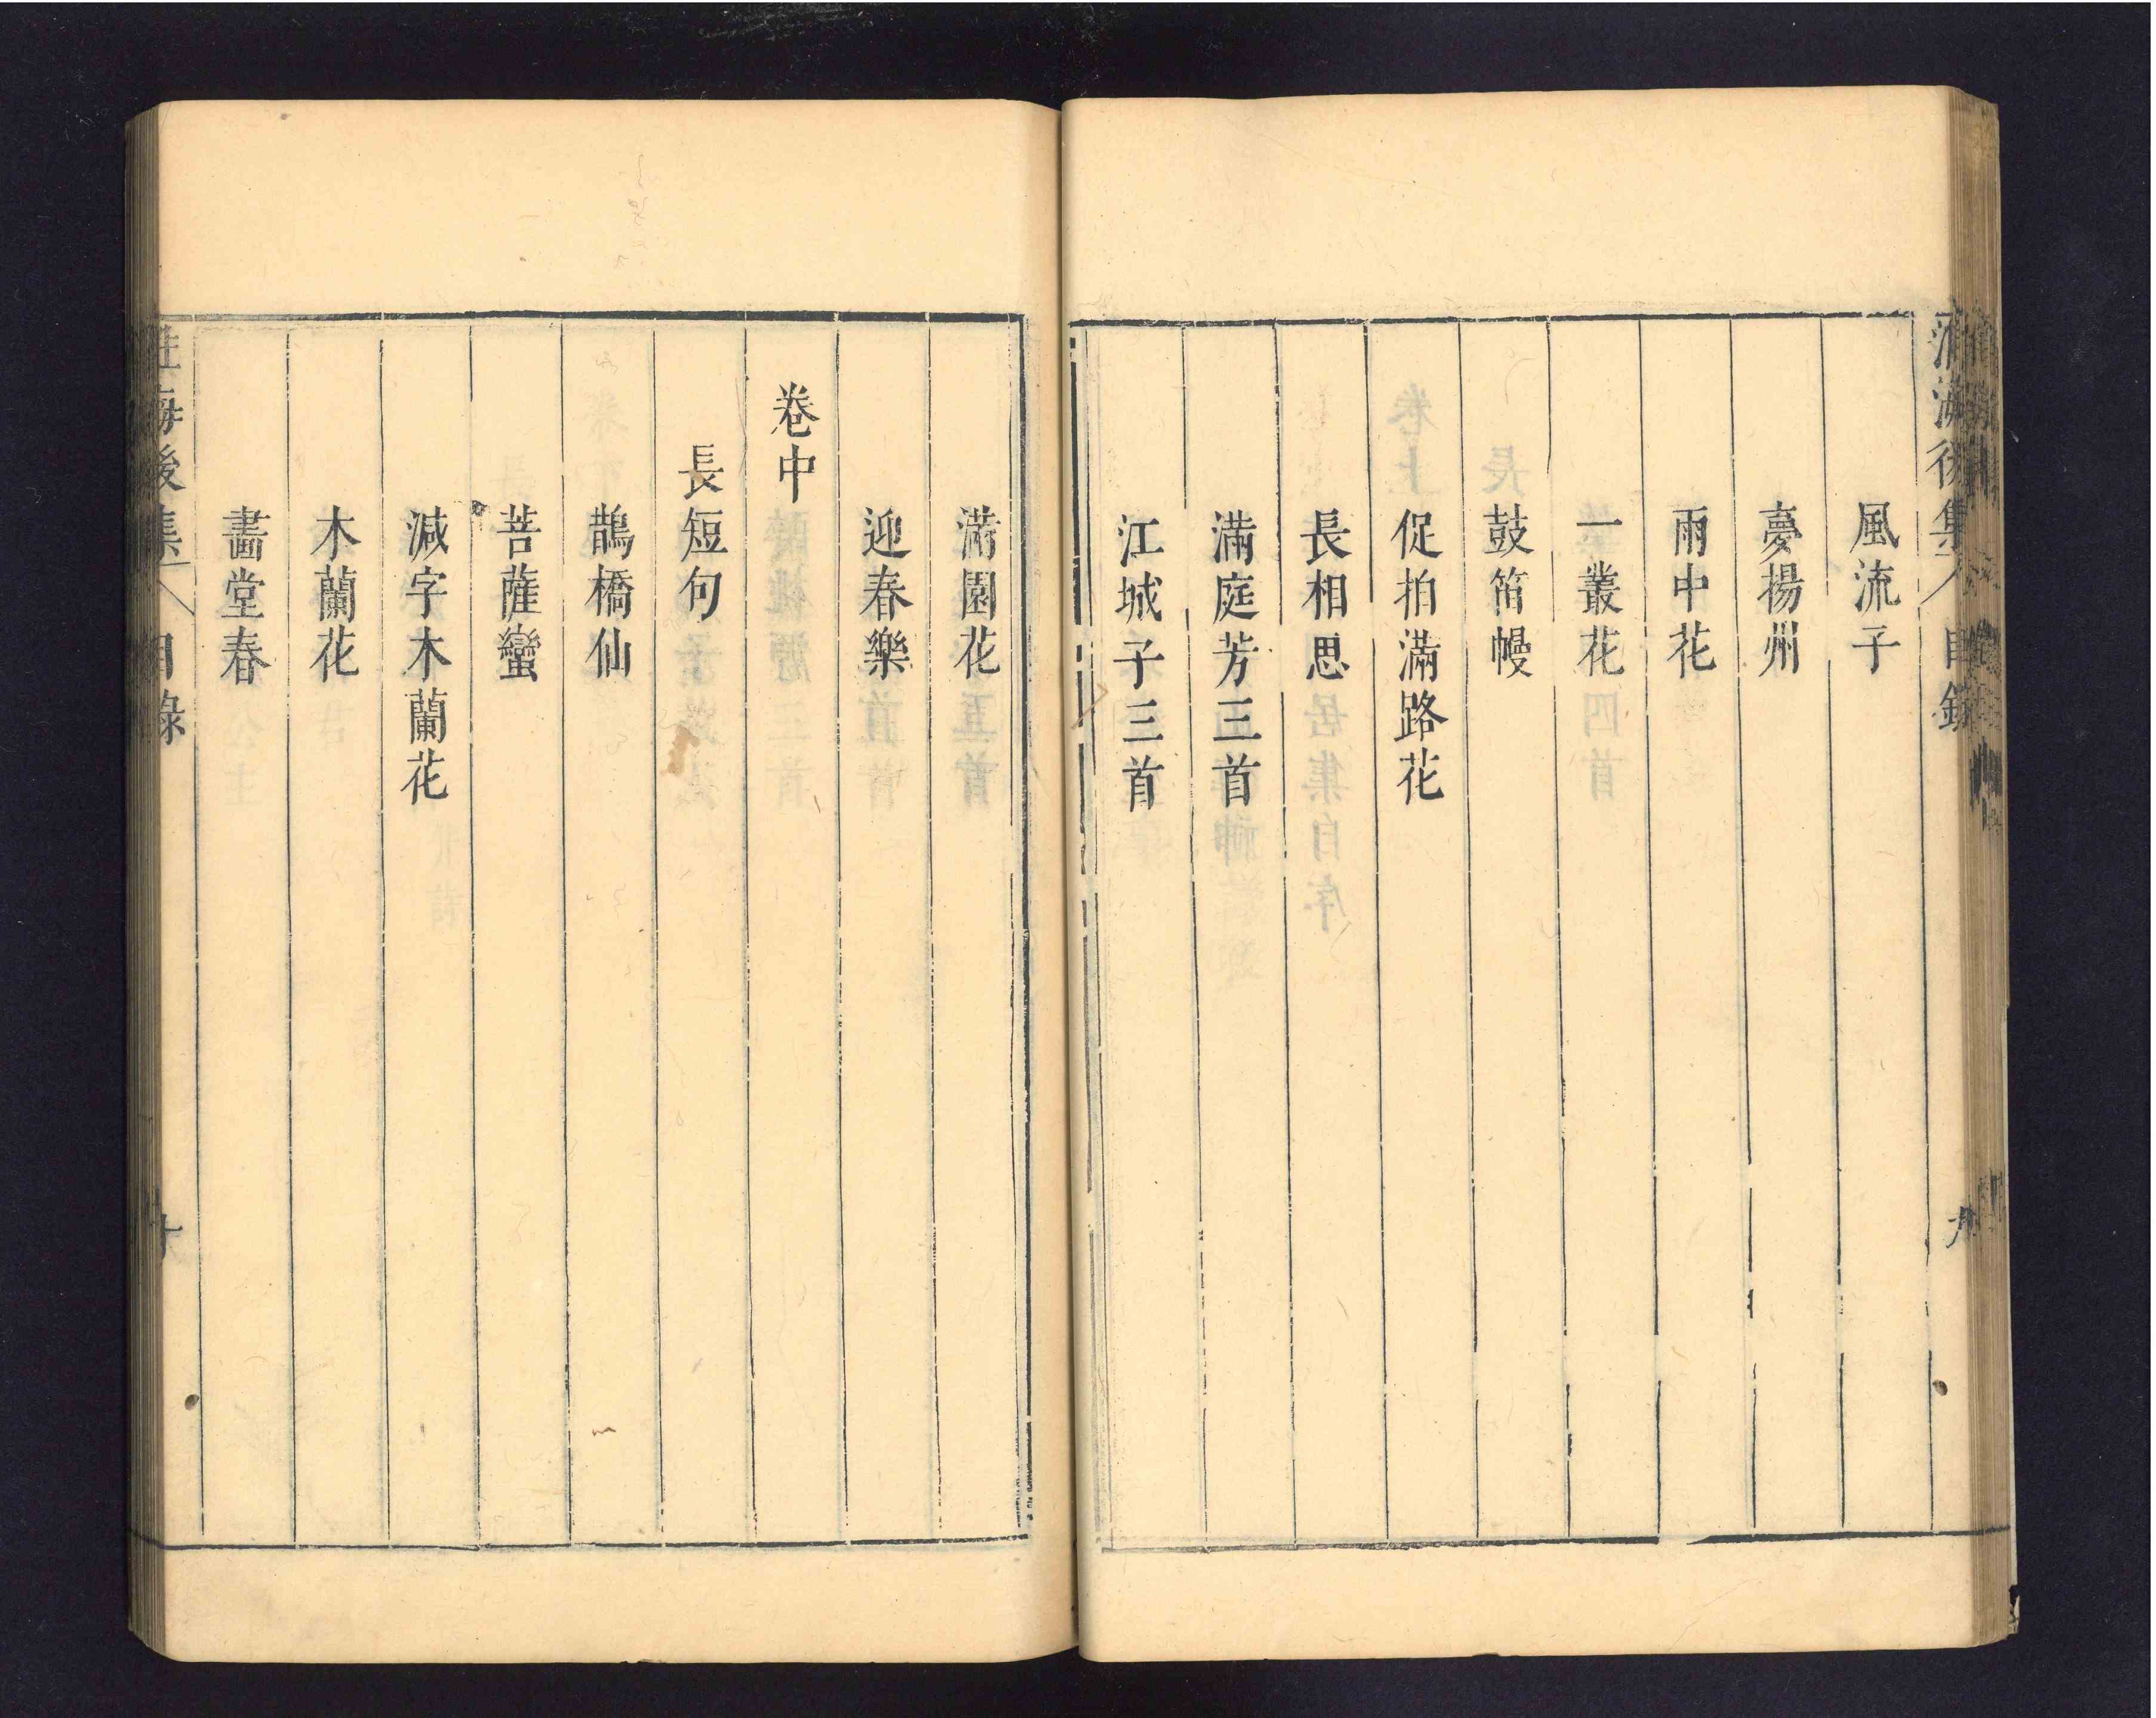 後集 目錄 九
風流子
夢揚州
雨中花
一叢花
鼓笛幔
促拍滿路花
長相思
滿庭芳三首
江城子三首
滿園花
迎春樂
卷中
長短句
鵲橋仙
菩薩蠻
減字木蘭花
木蘭花
畵堂春
海後集 目錄 十